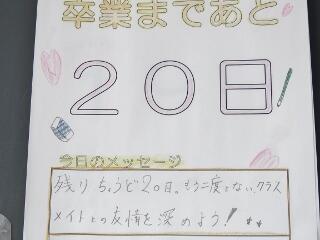 卒業まであと
20日
今日のメッセージ
残りちょうど20日。もう二度とないクラス
メイトとの友情を深めよう!